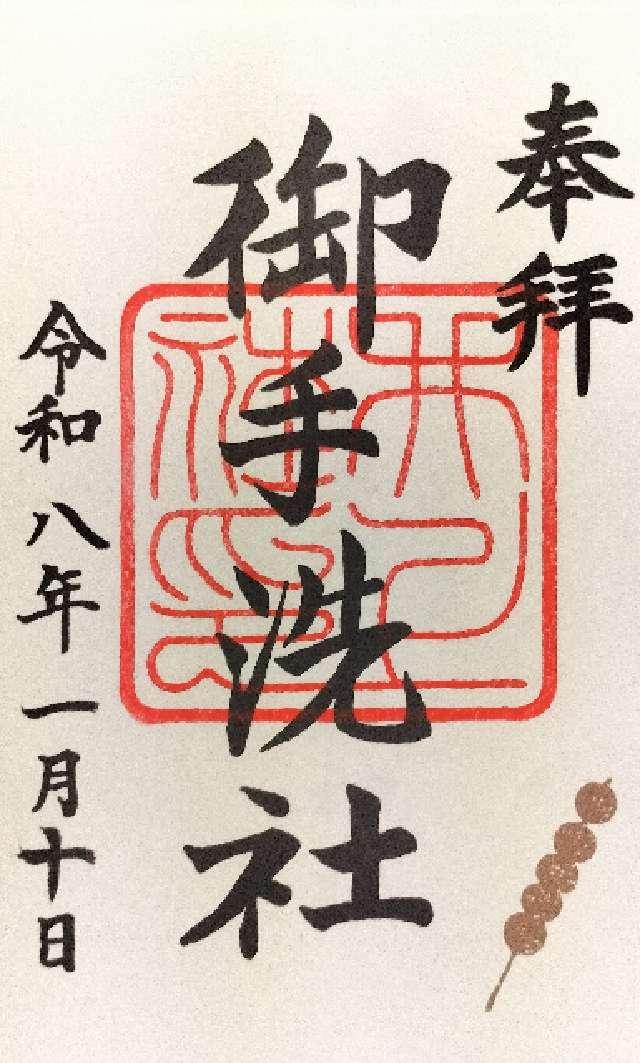 奉拝
御手洗社
令和八年一月十日